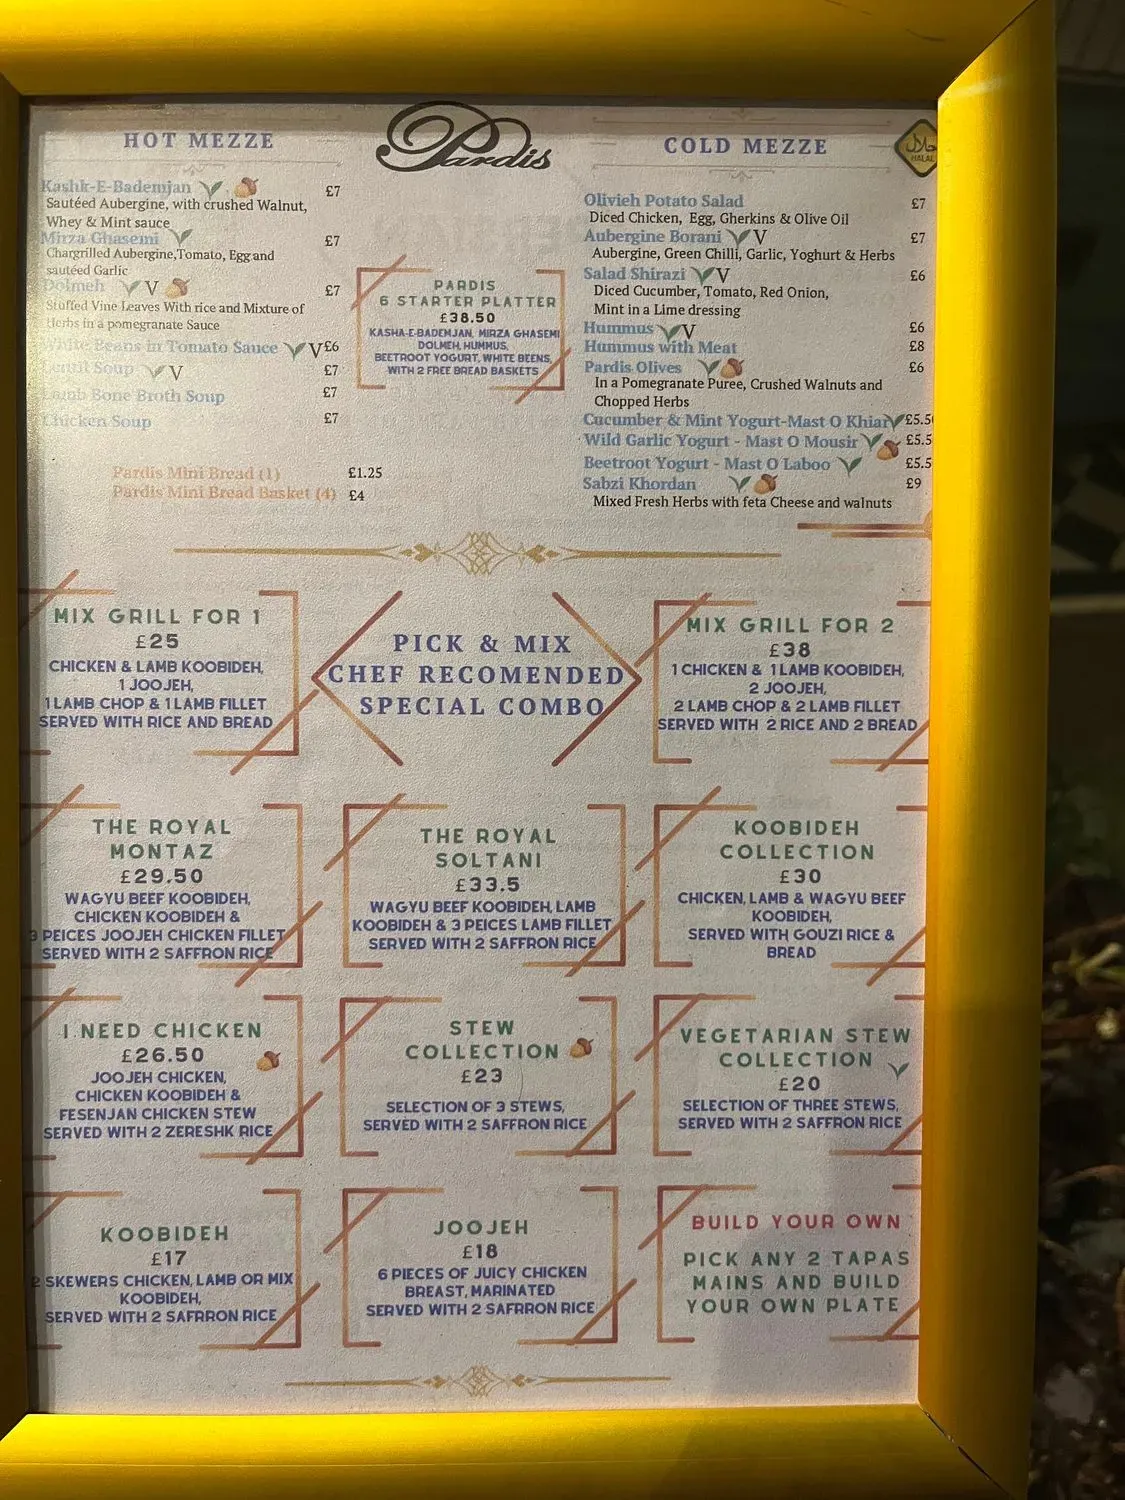 Pardis
HOT MEZZE
Kashk-E-Bademjan £7
Sautéed Aubergine, with crushed Walnut,
Whey & Mint sauce
Mirza Ghasemi £7
Chargrilled Aubergine,Tomato, Egg and
sautéed Garlic
Dolmeh V £7
Stuffed Vine Leaves With rice and Mixture of
Herbs in a pomegranate Sauce
White Beans in Tomato Sauce V £6
Lentil Soup V £7
Lamb Bone Broth Soup £7
Chicken Soup £7
Pardis Mini Bread (1) £1.25
Pardis Mini Bread Basket (4) £4
PARDIS
6 STARTER PLATTER
£38.50
KASHA-E-BADEMJAN, MIRZA GHASEMI
DOLMEH, HUMMUS,
BEETROOT YOGURT, WHITE BEENS,
WITH 2 FREE BREAD BASKETS
COLD MEZZE
حلال
HALAL
Olivieh Potato Salad £7
Diced Chicken, Egg, Gherkins & Olive Oil
Aubergine Borani V £7
Aubergine, Green Chilli, Garlic, Yoghurt & Herbs
Salad Shirazi V £6
Diced Cucumber, Tomato, Red Onion,
Mint in a Lime dressing
Hummus V £6
Hummus with Meat £8
Pardis Olives £6
In a Pomegranate Puree, Crushed Walnuts and
Chopped Herbs
Cucumber & Mint Yogurt-Mast O Khiar £5.5
Wild Garlic Yogurt - Mast O Mousir £5.5
Beetroot Yogurt - Mast O Laboo £5.5
Sabzi Khordan £9
Mixed Fresh Herbs with feta Cheese and walnuts
MIX GRILL FOR 1
£25
CHICKEN & LAMB KOOBIDEH,
1 JOOJEH,
1 LAMB CHOP & 1 LAMB FILLET
SERVED WITH RICE AND BREAD
PICK & MIX
CHEF RECOMENDED
SPECIAL COMBO
MIX GRILL FOR 2
£38
1 CHICKEN & 1 LAMB KOOBIDEH,
2 JOOJEH,
2 LAMB CHOP & 2 LAMB FILLET
SERVED WITH 2 RICE AND 2 BREAD
THE ROYAL
MONTAZ
£29.50
WAGYU BEEF KOOBIDEH,
CHICKEN KOOBIDEH &
3 PEICES JOOJEH CHICKEN FILLET
SERVED WITH 2 SAFFRON RICE
THE ROYAL
SOLTANI
£33.5
WAGYU BEEF KOOBIDEH, LAMB
KOOBIDEH & 3 PEICES LAMB FILLET
SERVED WITH 2 SAFFRON RICE
KOOBIDEH
COLLECTION
£30
CHICKEN, LAMB & WAGYU BEEF
KOOBIDEH,
SERVED WITH GOUZI RICE &
BREAD
I NEED CHICKEN
£26.50
JOOJEH CHICKEN,
CHICKEN KOOBIDEH &
FESENJAN CHICKEN STEW
SERVED WITH 2 ZERESHK RICE
STEW
COLLECTION
£23
SELECTION OF 3 STEWS,
SERVED WITH 2 SAFFRON RICE
VEGETARIAN STEW
COLLECTION
£20
SELECTION OF THREE STEWS,
SERVED WITH 2 SAFFRON RICE
KOOBIDEH
£17
2 SKEWERS CHICKEN, LAMB OR MIX
KOOBIDEH,
SERVED WITH 2 SAFRRON RICE
JOOJEH
£18
6 PIECES OF JUICY CHICKEN
BREAST, MARINATED
SERVED WITH 2 SAFRRON RICE
BUILD YOUR OWN
PICK ANY 2 TAPAS
MAINS AND BUILD
YOUR OWN PLATE